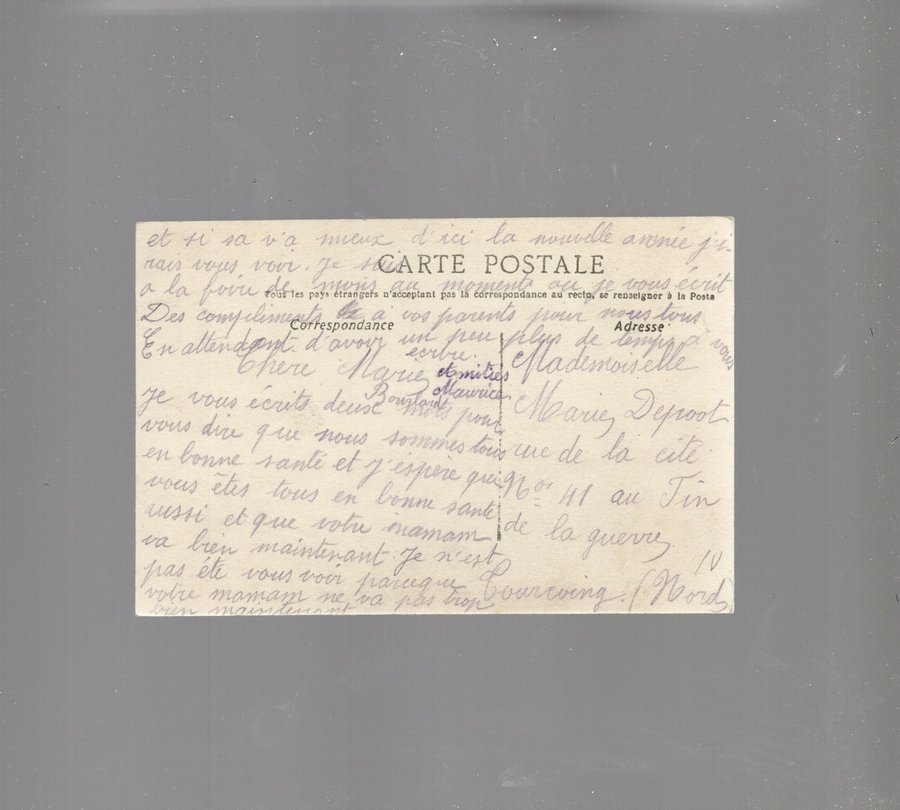 et si sa va mieux d'ici la nouvelle année j'i-
rais vous voir. Je suis
CARTE POSTALE
a la foire de mons au moment ou je vous écrit
Tous les pays étrangers n'acceptant pas la correspondance au recto, se renseigner à la Poste
Des compliments a vos parents pour nous tous
Correspondance
Adresse
En attendant d'avoir un peu plus de temps a vous
ecrire.
Chere Marie
amitiés
Maurice
Je vous écrits deux mots pour
vous dire que nous sommes tous
en bonne santé et j'espère que
vous etes tous en bonne santé
aussi et que votre mamam
va bien maintenant. Je n'est
pas été vous voir parceque
votre mamam ne va pas trop
bien maintenant
Mademoiselle
Marie Depoot
rue de la cité
Nos 41 au Tin
de la guerre
Tourcoing. (Nord)